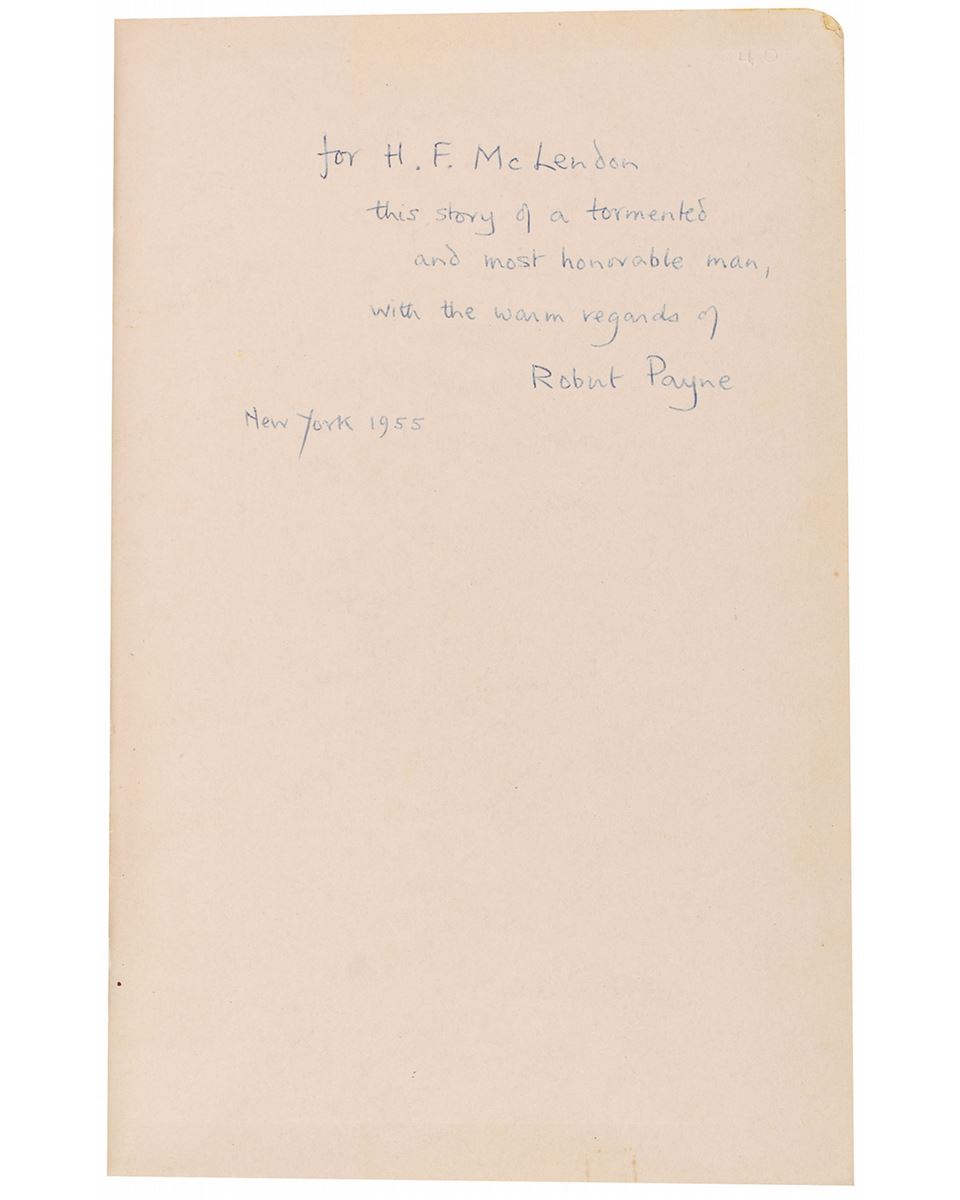 40
for H. F. McLendon
this story of a tormented
and most honorable man,
with the warm regards of
Robert Payne
New York 1955